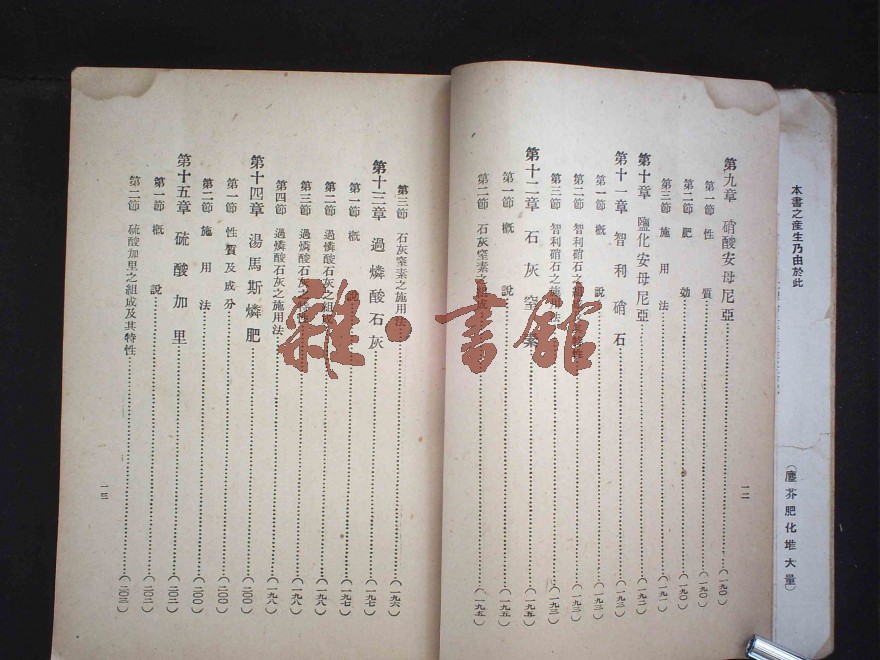 本書之產生乃由於此
（塵芥肥化堆大量）
第九章 硝酸安母尼亞……（一九〇）
第一節 性質……（一九〇）
第二節 肥効……（一九〇）
第三節 施用法……（一九一）
第十章 鹽化安母尼亞……（一九二）
第十一章 智利硝石……（一九三）
第一節 概說……（一九三）
第二節 智利硝石之
第三節 智利硝石之施用法……（一九三）
第十二章 石灰窒素……（一九五）
第一節 概說……（一九五）
第二節 石灰窒素之組成……（一九五）
一二
第三節 石灰窒素之施用法……（一九六）
第十三章 過燐酸石灰……（一九七）
第一節 概說……（一九七）
第二節 過燐酸石灰之組成……（一九八）
第三節 過燐酸石灰之特性……（一九八）
第四節 過燐酸石灰之施用法……（一九八）
第十四章 湯馬斯燐肥……（二〇〇）
第一節 性質及成分……（二〇〇）
第二節 施用法……（二〇〇）
第十五章 硫酸加里……（二〇二）
第一節 概說……（二〇二）
第二節 硫酸加里之組成及其特性……（二〇二）
一三
雜·書館